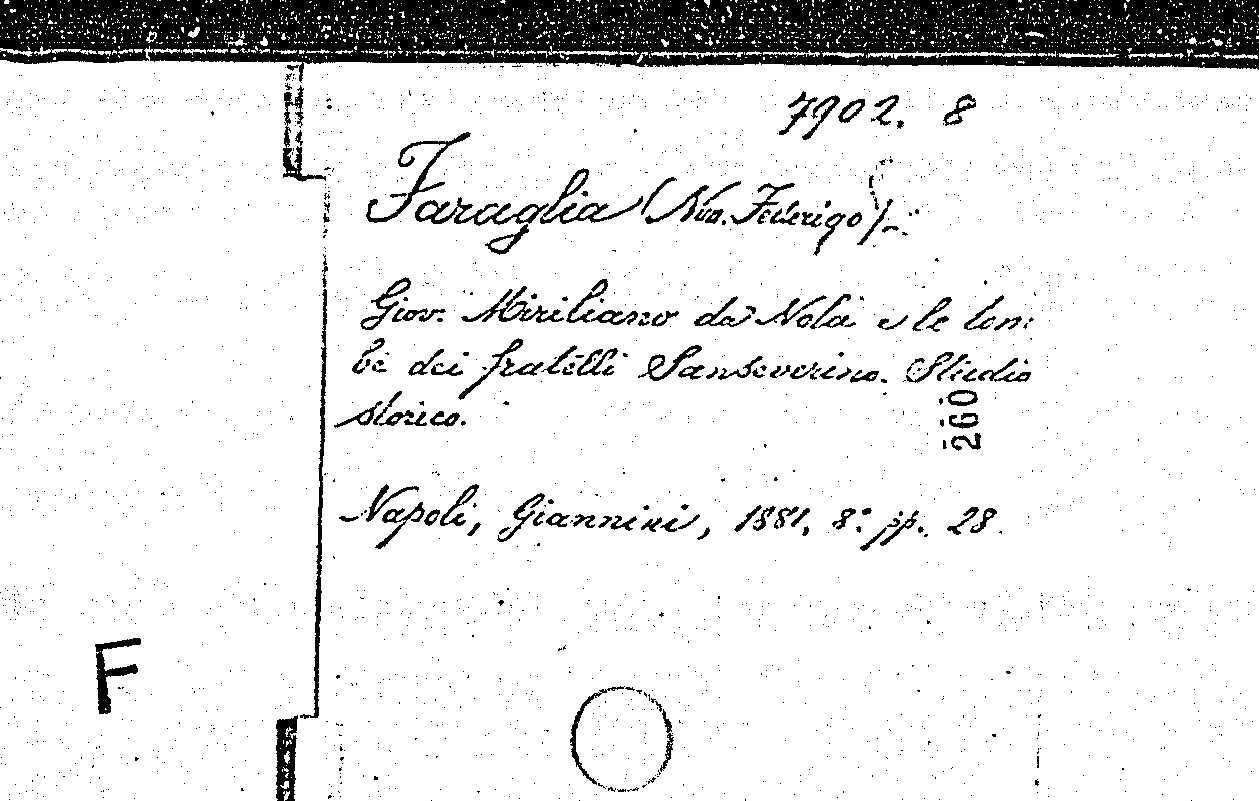 7902. 8
Faraglia (Nun. Federigo).
Giov. Miriliano da Nola e le tom:
be dei fratelli Sanseverino. Studio
storico.
260
Napoli, Giannini, 1881, 8.° pp. 28.
F